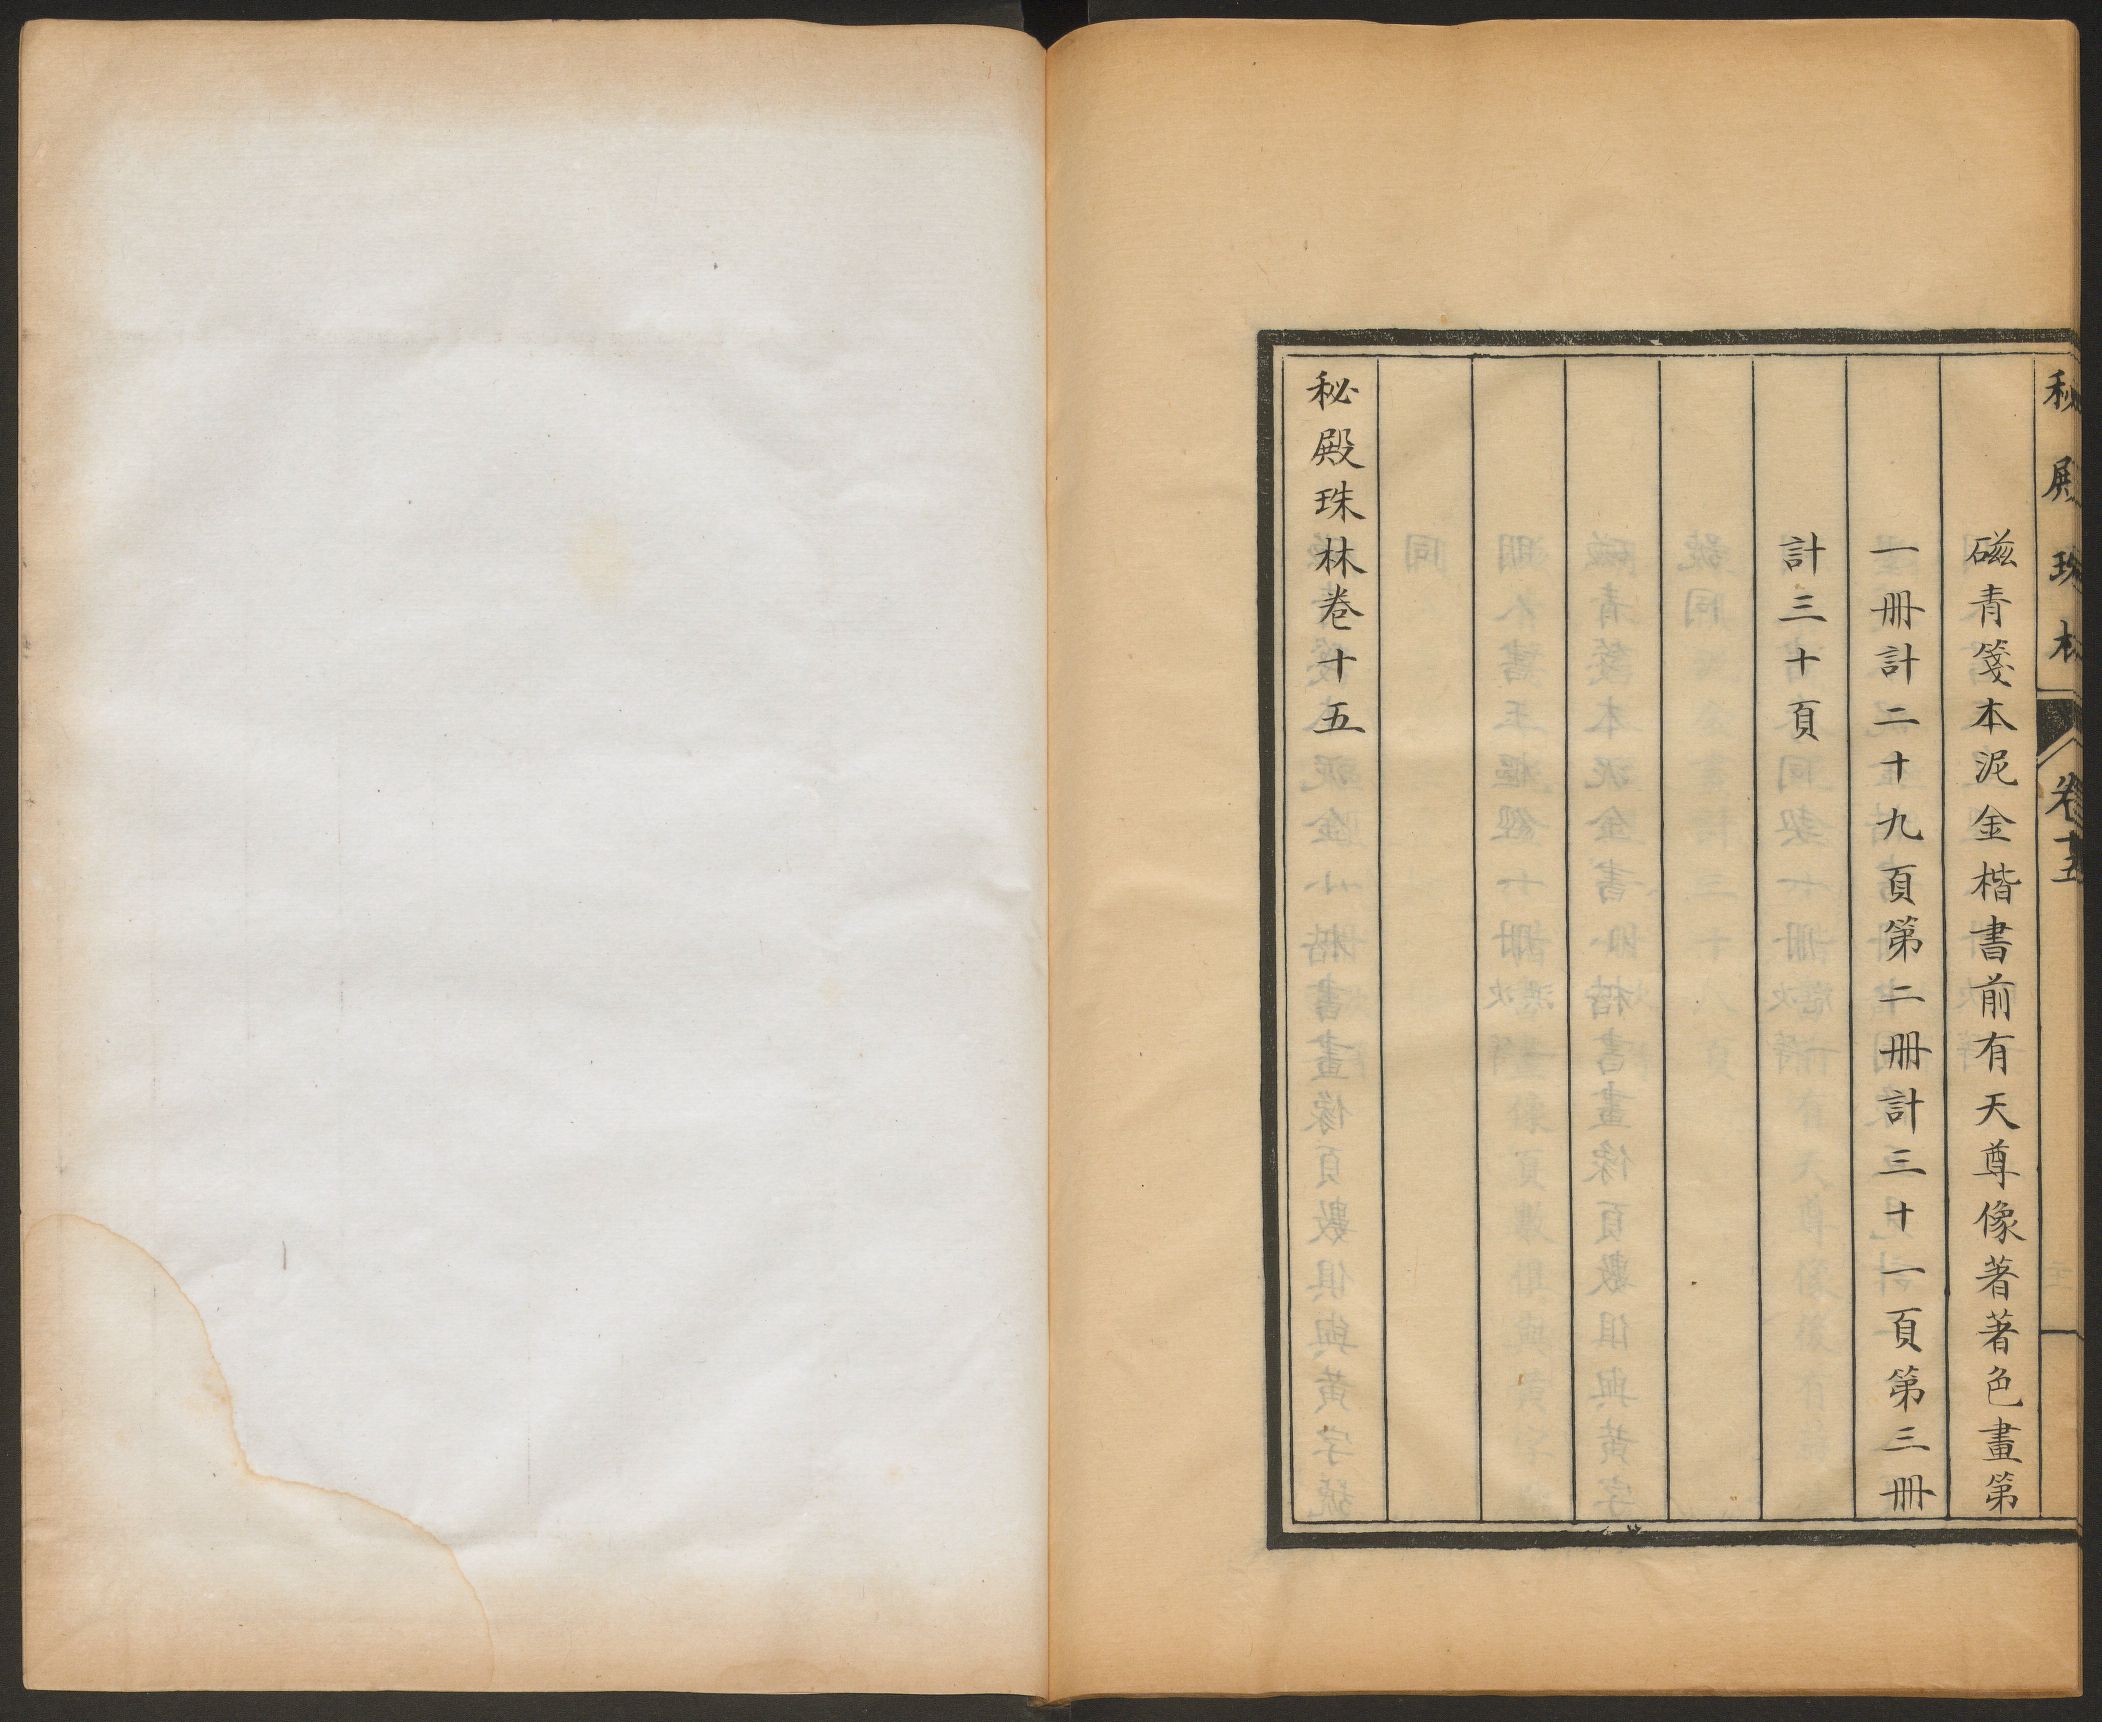 秘殿珠林 卷十五
磁青箋本泥金楷書前有天尊像著著色畫第
一冊計二十九頁第二冊計三十一頁第三冊
計三十頁
秘殿珠林卷十五